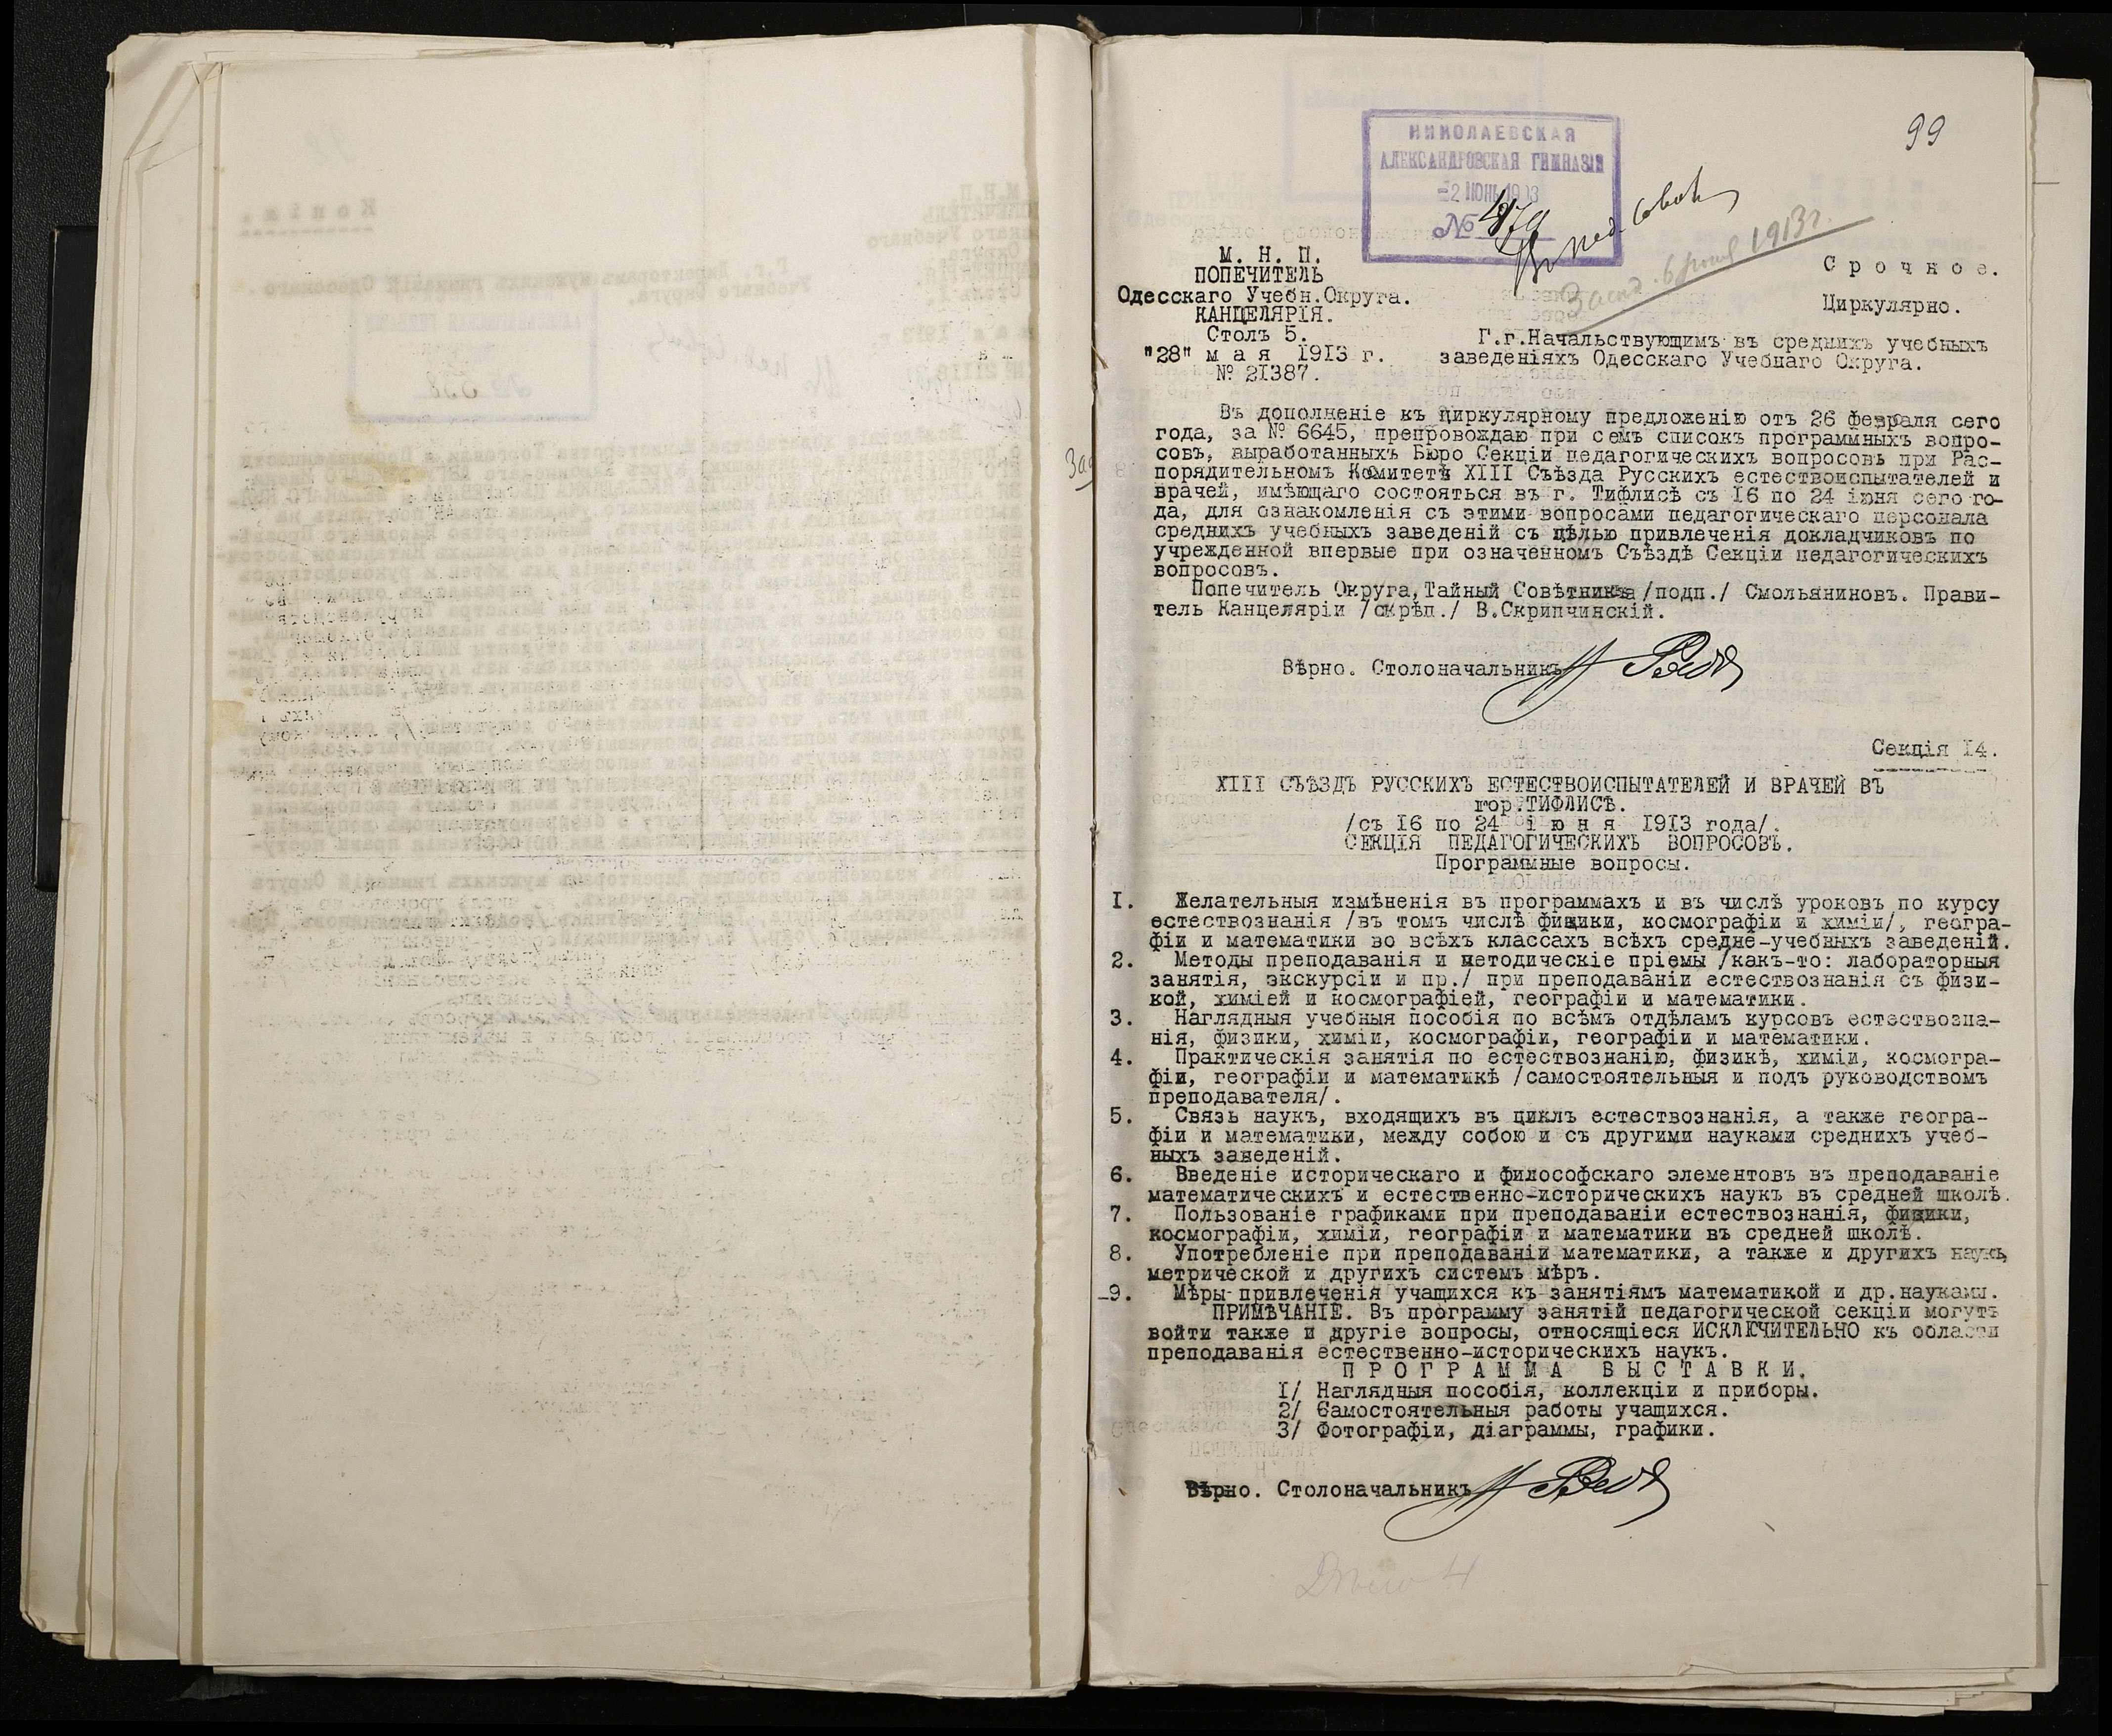 99
НИКОЛАЕВСКАЯ
АЛЕКСАНДРОВСКАЯ ГИМНАЗІЯ
-2 ІЮНЬ 1913
№
Въ пед. Совѣт
Засѣд. 6 1913 г.
М. Н. П.
ПОПЕЧИТЕЛЬ
Одесскаго Учебн.Округа.
КАНЦЕЛЯРІЯ.
Столъ 5.
"28" м а я 1913 г.
№ 21387.
С р о ч н о е.
Циркулярно.
Г.г.Начальствующимъ въ среднихъ учебныхъ
заведеніяхъ Одесскаго Учебнаго Округа.
Въ дополненіе къ циркулярному предложенію отъ 26 февраля сего
года, за № 6645, препровождаю при семъ списокъ программныхъ вопро-
совъ, выработанныхъ Бюро Секціи педагогическихъ вопросовъ при Рас-
порядительномъ Комитетѣ XIII Съѣзда Русскихъ естествоиспытателей и
врачей, имѣющаго состояться въ г. Тифлисѣ съ 16 по 24 іюня сего го-
да, для ознакомленія съ этими вопросами педагогическаго персонала
среднихъ учебныхъ заведеній съ цѣлью привлеченія докладчиковъ по
учрежденной впервые при означенномъ Съѣздѣ Секціи педагогическихъ
вопросовъ.
Попечитель Округа,Тайный Совѣтникъ /подп./ Смольяниновъ. Прави-
тель Канцеляріи /скрѣп./ В.Скрипчинскій.
Вѣрно. Столоначальникъ
Секція 14.
XIII СЪѢЗДЪ РУССКИХЪ ЕСТЕСТВОИСПЫТАТЕЛЕЙ И ВРАЧЕЙ ВЪ
гор.ТИФЛИСѢ.
/съ 16 по 24 і ю н я 1913 года/.
СЕКЦІЯ ПЕДАГОГИЧЕСКИХЪ ВОПРОСОВЪ.
Программные вопросы.
1. Желательныя измѣненія въ программахъ и въ числѣ уроковъ по курсу
естествознанія /въ томъ числѣ физики, космографіи и химіи/, геогра-
фіи и математики во всѣхъ классахъ всѣхъ средне-учебныхъ заведеній.
2. Методы преподаванія и методическіе пріемы /какъ-то: лабораторныя
занятія, экскурсіи и пр./ при преподаваніи естествознанія съ физи-
кой, химіей и космографіей, географіи и математики.
3. Наглядныя учебныя пособія по всѣмъ отдѣламъ курсовъ естествозна-
нія, физики, химіи, космографіи, географіи и математики.
4. Практическія занятія по естествознанію, физикѣ, химіи, космогра-
фіи, географіи и математикѣ /самостоятельныя и подъ руководствомъ
преподавателя/.
5. Связь наукъ, входящихъ въ циклъ естествознанія, а также геогра-
фіи и математики, между собою и съ другими науками среднихъ учеб-
ныхъ заведеній.
6. Введеніе историческаго и философскаго элементовъ въ преподаваніе
математическихъ и естественно-историческихъ наукъ въ средней школѣ.
7. Пользованіе графиками при преподаваніи естествознанія, физики,
космографіи, химіи, географіи и математики въ средней школѣ.
8. Употребленіе при преподаваніи математики, а также и другихъ наукъ,
метрической и другихъ системъ мѣръ.
9. Мѣры привлеченія учащихся къ занятіямъ математикой и др.науками.
ПРИМѢЧАНІЕ. Въ программу занятій педагогической секціи могутъ
войти также и другіе вопросы, относящіеся ИСКЛЮЧИТЕЛЬНО къ области
преподаванія естественно-историческихъ наукъ.
П Р О Г Р А М М А В Ы С Т А В К И.
1/ Наглядныя пособія, коллекціи и приборы.
2/ Самостоятельныя работы учащихся.
3/ Фотографіи, діаграммы, графики.
Вѣрно. Столоначальникъ